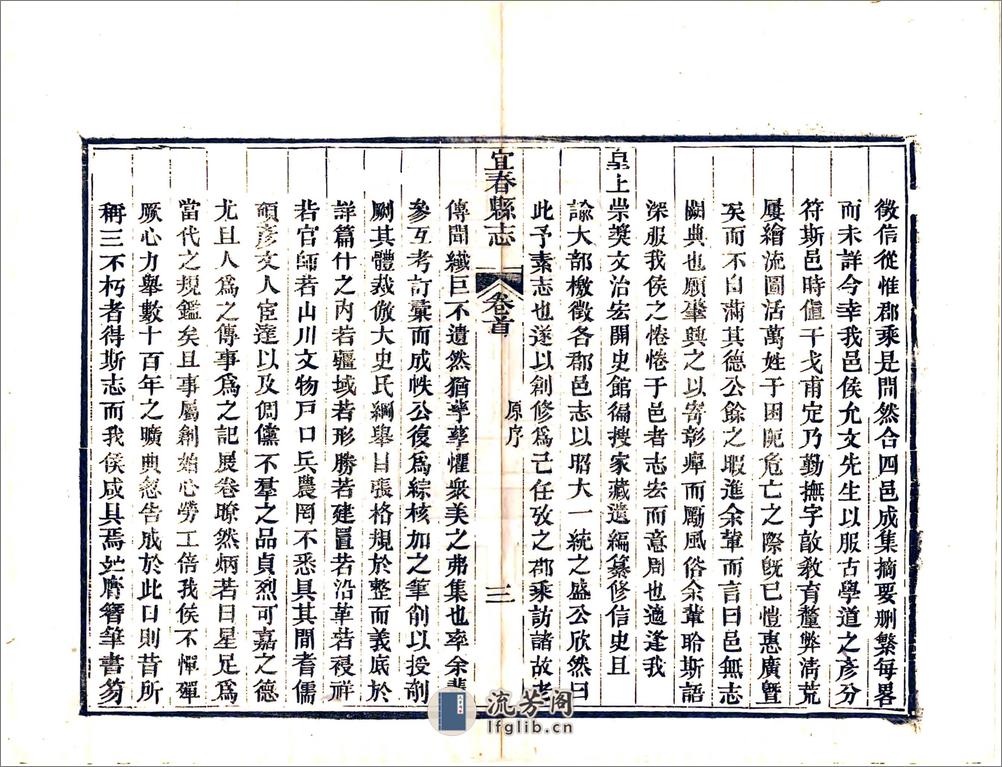 徵信從惟郡乘是問然合四邑成集摘要刪繁每畧
而未詳今幸我邑侯允文先生以服古學道之彥分
符斯邑時値干戈甫定乃勤撫字敦敎育釐弊淸荒
屢繪流圖活萬姓于困阨危亡之際旣已愷惠廣曁
矣而不自滿其德公餘之暇進余輩而言曰邑無志
闕典也願肇興之以寄彰癉而勵風俗余輩聆斯語
深服我侯之惓惓于邑者志宏而意周也適逢我
皇上崇奬文治宏開史館徧搜家藏遺編纂修信史且
諭大部檄徵各郡邑志以昭大一統之盛公欣然曰
此予素志也遂以創修爲己任攷之郡乘訪諸故老
宜春縣志
卷首
原序
三
傳聞纎巨不遺然猶孳孳懼衆美之弗集也率余輩
參互考訂彙而成帙公復爲綜核加之筆削以授剞
劂其體裁倣大史氏綱舉目張格規於整而義底於
詳篇什之內若疆域若形勝若建置若沿革若祲祥
若官師若山川文物戸口兵農罔不悉具其間耆儒
碩彥文人宦達以及倜儻不羣之品貞烈可嘉之德
尤且人爲之傳事爲之記展卷暸然炳若日星足爲
當代之規鑑矣且事屬創始心勞工倍我侯不憚殫
厥心力舉數十百年之曠典忽告成於此日則昔所
稱三不朽者得斯志而我侯咸具焉 膺簪筆書笏
流芳阁
lfglib.cn